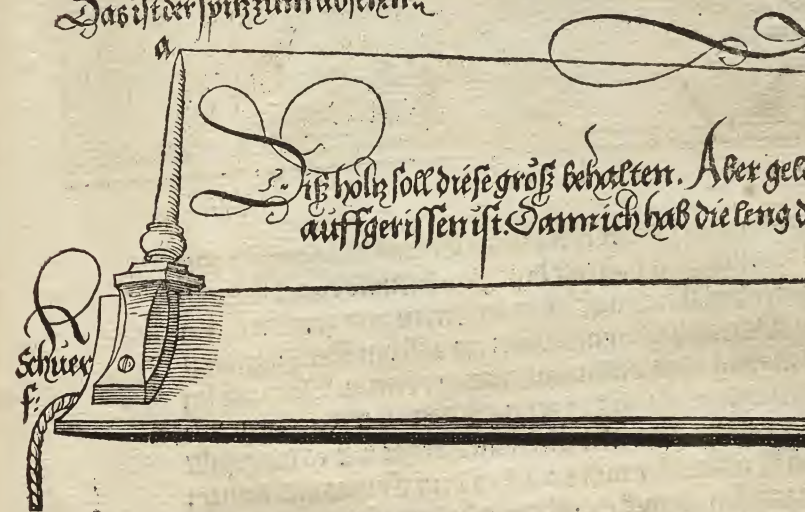 Das ist der spitz zum absehen
a
Diß holtz soll diese größ behalten. Aber gele
auffgerissen ist. Dann ich hab die leng d
Schuer
f: